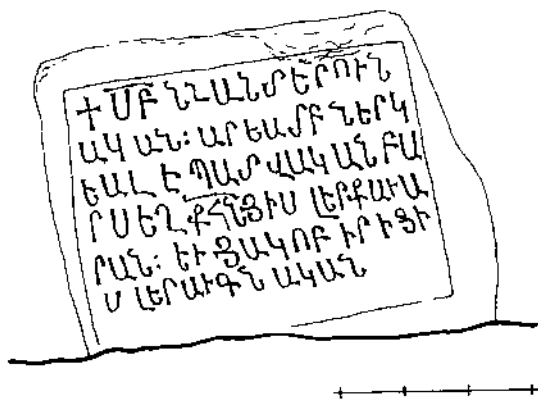 + ՍԲ ՆՇԱՆ ՏԵՐՈՒՆ
ԱԿԱՆ: ԱՐԵԱՄԲ ՆԵՐԿ
ԵԱԼ Է ՊԱՏՎԱԿԱՆ ԲԱ
ՐՍԵՂ ՔՀՆՅԻՍ ԼԵՐ ՔԱՒԱ
ՐԱՆ: ԵՒ ՅԱԿՈԲ ԻՐԻՑԻ
Ս ԼԵՐ ԱՒԳՆԱԿԱՆ